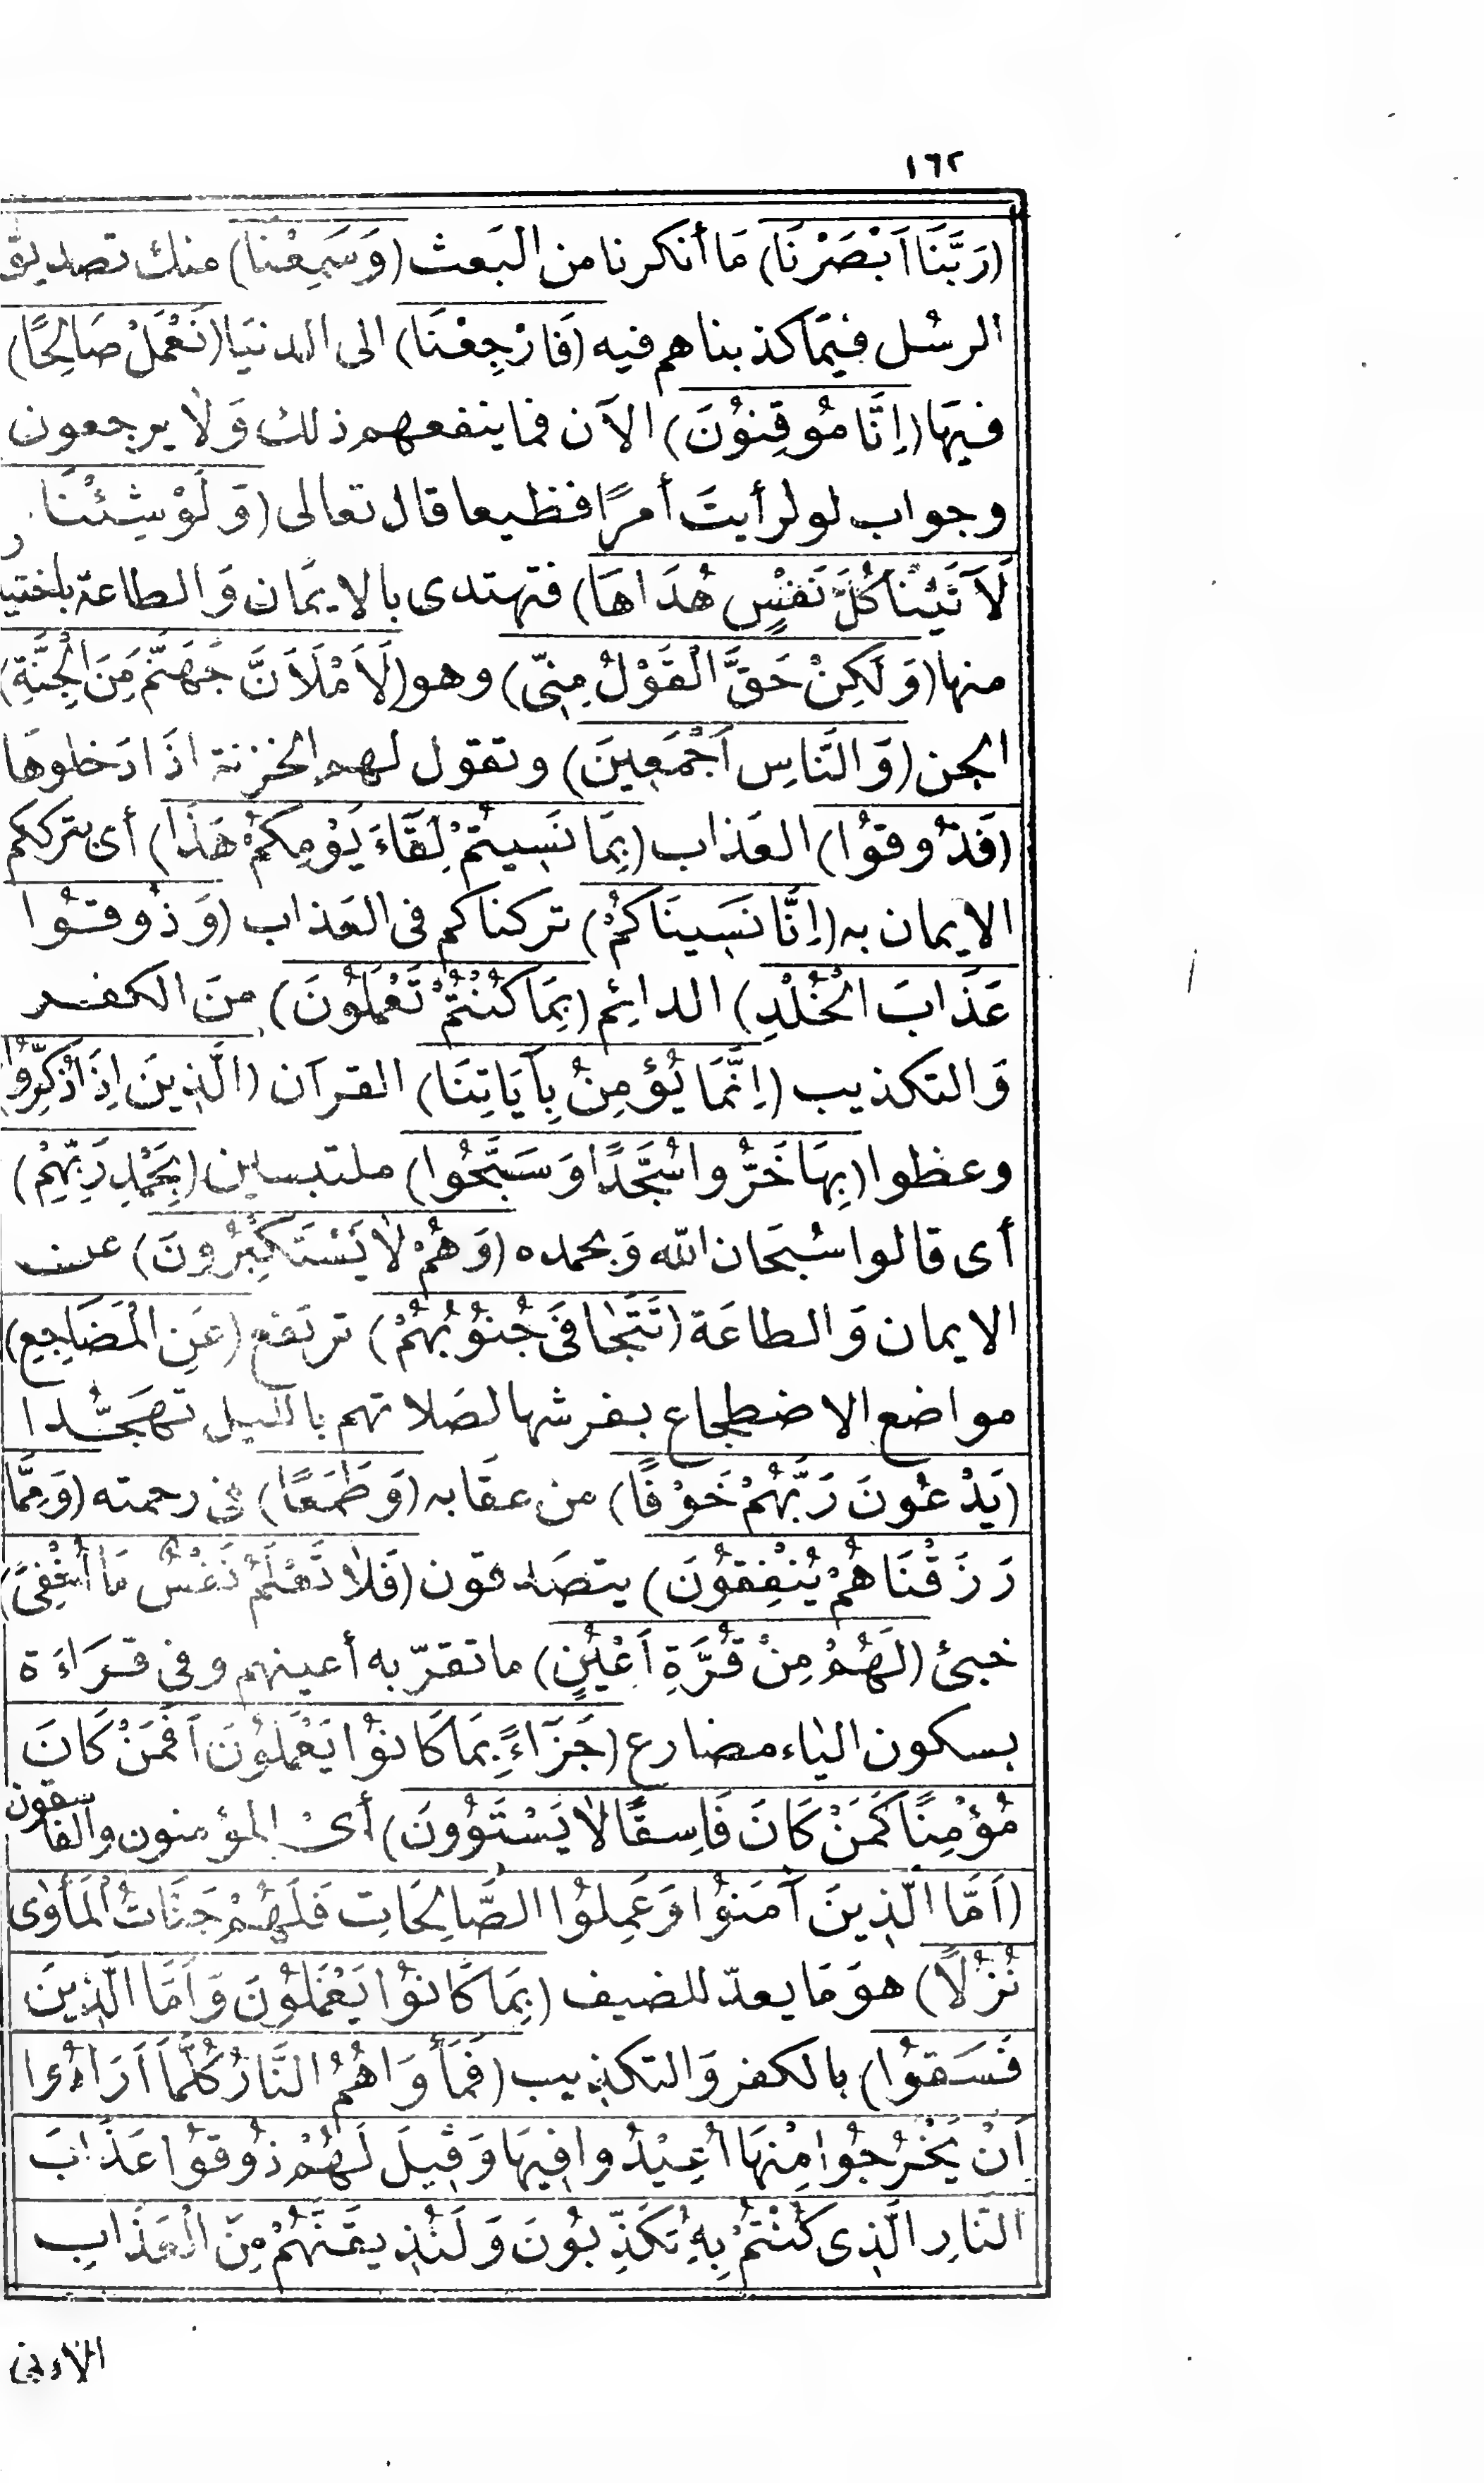 ١٦٢
(رَبَّنَا اَبْصَرْنَا) مَا أنكرنا من البَعث (وَسَمِعْنَا) منك تصديق
الرسُل فيمَا كذبناهم فيه (فَارْجِعْنَا) الى الدنيَا (نَعْمَلْ صَالِحًا)
فيهَا (اِنَّا مُوقِنوُنَ) الآن فما ينفعهم ذلك وَلَا يرجعون
وجواب لو لرأيتَ أمرًا فظيعا قال تعالى (وَلَوْ شِئْنَا
لَآتَيْنَا كُلَّ نَفْسٍ هُدَاهَا) فتهتدى بالايمَان وَالطاعة باختيار
منها (وَلَكِنْ حَقَّ الْقَوْلُ مِنِّى) وهو (لَاَمْلَاَنَّ جَهَنَّمَ مِنَ الْجِنَّةِ)
الجن (وَالنَّاسِ اَجْمَعِينَ) وتقول لهم الخزنة اذَا دَخلوهَا
(فَذُوقوُا) العَذاب (بِمَا نَسِيتُمْ لِقَآءَ يَوْمِكُمْ هَذَا) أى بترككم
الايمان به (اِنَّا نَسِينَاكُمْ) تركناكم فى العَذاب (وَذُوقوُا
عَذَابَ الْخُلْدِ) الدائم (بِمَا كُنْتُمْ تَعْمَلُونَ) منَ الكفر
وَالتكذيب (اِنَّمَا يُؤمِنُ بِآيَاتِنَا) القرآن (الَّذِينَ اِذَا ذُكِّرُوا
وعظوا (بِهَا خَرُّوا سُجَّدًا وَسَبَّحُوا) ملتبسين (بِحَمْدِ رَبِّهِمْ)
أى قالوا سُبحَان الله وَبحمده (وَهُمْ لَا يَسْتَكْبِرُونَ) عن
الايمان وَالطاعَة (تَتَجَافَى جُنوُبُهُمْ) ترتفع (عَنِ الْمَضَاجِعِ)
مواضع الاضطجاع بفرشها لصَلاتهم بالليل تهجُّدا
(يَدْعُونَ رَبَّهُمْ خَوْفًا) من عقَابه (وَطَمَعًا) فى رحمته (وَمِمَّا
رَزَقْنَاهُمْ يُنْفِقوُنَ) يتصَدقون (فَلَا تَعْلَمُ نَفْسٌ مَا اُخْفِىَ)
خبئ (لَهُمْ مِنْ قُرَّةِ اَعْيُنٍ) ما تقرّ به أعينهم وفى قرَاءَة
بسكون اليَاء مضارع (جَزَآءً بِمَا كَانوُا يَعْمَلوُنَ اَفَمَنْ كَانَ
مُؤْمِنًا كَمَنْ كَانَ فَاسِقًا لَا يَسْتَوُونَ) أى المؤمنون والفاسقون
(اَمَّا الَّذِينَ آمَنوُا وَعَمِلوُا الصَّالِحَاتِ فَلَهُمْ جَنَّاتُ الْمَأْوٰى
نُزُلًا) هوَ مَا يعدّ للضيف (بِمَا كَانوُا يَعْمَلوُنَ وَاَمَّا الَّذِينَ
فَسَقوُا) بالكفر وَالتكذيب (فَمَأْوَاهُمُ النَّارُ كُلَّمَا اَرَادُوا
اَنْ يَخْرُجُوا مِنْهَا اُعِيْدُوا فِيهَا وَقِيلَ لَهُمْ ذُوقوُا عَذَابَ
النَّارِ الَّذِى كُنْتُمْ بِهِ تُكَذِّبوُنَ وَلَنُذِيقَنَّهُمْ مِنَ الْعَذَابِ
الادنى